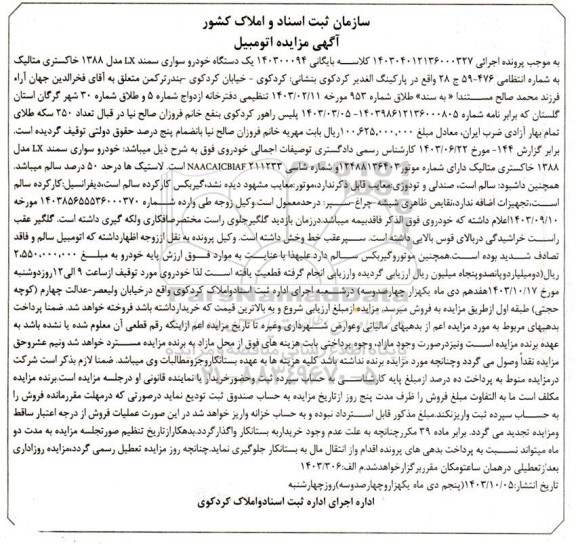 سازمان ثبت اسناد و املاک کشور
آگهی مزایده اتومبیل
به موجب پرونده اجرائی ۱۴۰۳۰۴۰۱۲۱۳۶۰۰۰۳۲۷ کلاسه بایگانی ۱۴۰۳۰۰۰۹۴ یک دستگاه خودرو سواری سمند LX مدل ۱۳۸۸ خاکستری متالیک
به شماره انتظامی ۴۷۶-۵۹ ج ۲۸ واقع در پارکینگ الغدیر کردکوی بنشانی: کردکوی - خیابان کردکوی -بندرترکمن متعلق به آقای فخرالدین جهان آراء
فرزند محمد صالح مستندا « به سند» طلاق شماره ۹۵۳ مورخه ۱۴۰۳/۰۲/۱۱ تنظیمی دفترخانه ازدواج شماره ۵ و طلاق شماره ۳۰ شهر گرگان استان
گلستان که برابر نامه شماره ۱۴۰۳۹۸۶۱۲۱۳۶۰۰۰۸۰۵- ۱۴۰۳/۰۳/۰۵ پلیس راهور کردکوی بنفع خانم فروزان صالح نیا در قبال تعداد ۲۵۰ سکه طلای
تمام بهار آزادی ضرب ایران، معادل مبلغ ۱۰۰،۶۲۵،۰۰۰،۰۰۰ ریال بابت مهریه خانم فروزان صالح نیا بانضمام پنج درصد حقوق دولتی توقیف گردیده است.
برابر گزارش ۱۴۴- مورخ ۱۴۰۳/۰۶/۲۲ کارشناس رسمی دادگستری توصیفات اجمالی خودروی فوق به شرح ذیل میباشد: خودرو سواری سمند LX مدل
۱۳۸۸ خاکستری متالیک دارای شماره موتور۱۲۴۸۸۱۳۶۴۰۳وشماره شاسی NAACAICBIAF ۲۱۱۲۳۳ است. لاستیک ها درحد ۵۰ درصد سالم میباشد.
همچنین داشبود: سالم است، صندلی و تودوزی:معایب قابل ذکرندارد،موتور:معایب مشهود دیده نشد،گیربکس کارکرده سالم است،دیفرانسیل:کارکرده سالم
است،تجهیزات اضافه ندارد،نقایص ظاهری شیشه چراغ-سپر: درحدمعمول است وکیل زوجه طی وارده شماره ۱۴۰۳۸۵۶۵۵۵۳۶۰۰۰۳۷۰ مورخ
۱۴۰۳/۰۹/۱۰اعلام داشته که خودروی فوق الذکر فاقدبیمه میباشد.درزمان بازدید گلگیرجلوی راست مختصرصافکاری ولکه گیری داشته است. گلگیر عقب
راست خراشیدگی دربالای قوس بالایی داشته است. سپرعقب خط وخش داشته است. وکیل پرونده به نقل اززوجه اظهارداشته که اتومبیل سالم و فاقد
تصادف شدید بوده است.همچنین موتوروگیربکس سالم دارد علیهذا با عنایت به موارد فوق ارزش پایه خودرو به مبلغ ۲،۵۵۰،۰۰۰،۰۰۰
ریال(دومیلیاردوپانصدوپنجاه میلیون ریال ارزیابی گردیده وارزیابی انجام گرفته قطعیت یافته است لذا خودروی مورد توقیف ازساعت ۹ الی۱۲روزدوشنبه
مورخ ۱۴۰۳/۱۰/۱۷(هفدهم دی ماه یکهزار چهارصدوسه) درشعبه اجرای اداره ثبت اسنادواملاک کردکوی واقع درخیابان ولیعصر-عدالت چهارم (کوچه
حجتی) طبقه اول ازطریق مزایده به فروش میرسد. مزایده ازمبلغ ارزیابی شروع و به بالاترین قیمت که خریدارداشته باشد فروخته خواهد شد. ضمنا پرداخت
بدهیهای مربوط به مورد مزایده اعم از بدهیهای مالیاتی وعوارض شهرداری وغیره تا تاریخ مزایده اعم ازاینکه رقم قطعی آن معلوم شده یا نشده باشد به
عهده برنده مزایده است ونیزدرصورت وجود مازاد، وجوه پرداختی بابت هزینه های فوق از محل مازاد به برنده مزایده مسترد خواهد شد ونیم عشروحق
مزایده نقداً وصول می گردد وچنانچه مورد مزایده برنده نداشته باشد کلیه هزینه ها به عهده بستانکاروجزومطالبات وی میباشد. ضمنا لازم بذکر است شرکت
درمزایده منوط به پرداخت ده درصد ازمبلغ پایه کارشناسی به حساب سپرده ثبت وحضورخریدار یا نماینده قانونی او درجلسه مزایده است.برنده مزایده
مکلف است ما به التفاوت مبلغ فروش را ظرف مدت پنج روز ازتاریخ مزایده به حساب صندوق ثبت تودیع نماید درصورتی که درمهلت مقررمانده فروش را
به حساب سپرده ثبت واریزنکند،مبلغ مذکور قابل استرداد نبوده و به حساب خزانه واریز خواهد شد در این صورت عملیات فروش از درجه اعتبار ساقط
ومزایده تجدید می گردد. برابر ماده ۳۹ مکررچنانچه به علت عدم وجود خریداربه بستانکار واگذارگردد.بدهکارازتاریخ تنظیم صورتجلسه مزایده به مدت دو
ماه میتواند نسبت به پرداخت بدهی های پرونده اقدام واز انتقال مال به بستانکار جلوگیری نماید.چنانچه روز مزایده تعطیل رسمی گردد،مزایده روزاداری
بعدازتعطیلی درهمان ساعتومکان مقرربرگزارخواهدشد.م الف:۱۴۰۳/۳۰۶
تاریخ انتشار:۱۴۰۳/۱۰/۰۵(پنجم دی ماه یکهزاروچهارصدوسه)روزچهارشنبه
اداره اجرای اداره ثبت اسنادواملاک کردکوی